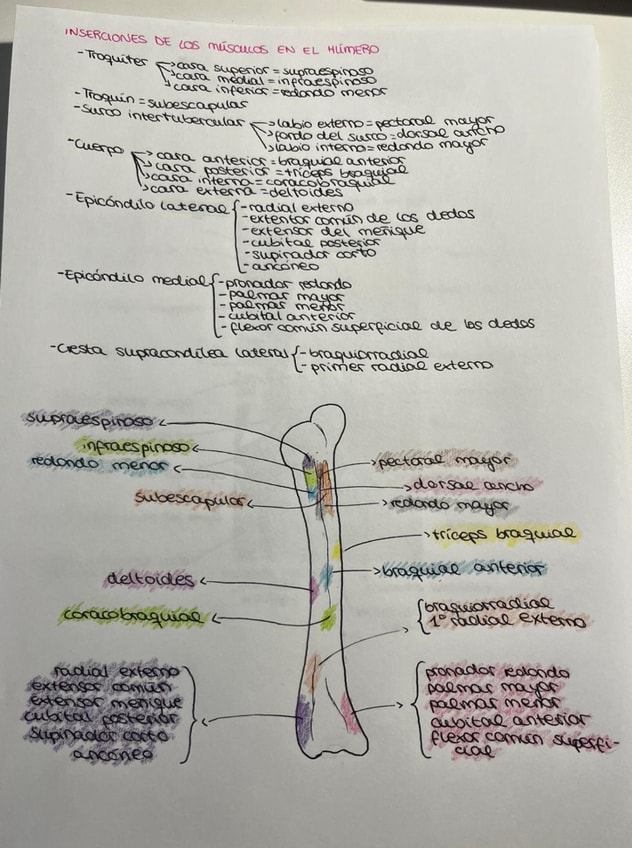 INSERCIONES DE LOS MÚSCULOS EN EL HÚMERO
-Troquiter
cara superior = supraespinoso
cara medial = infraespinoso
cara inferior = redondo menor
-Troquín = subescapular
-Surco intertubercular
labio externo = pectoral mayor
fondo del surco = dorsal ancho
labio interno = redondo mayor
-Cuerpo
cara anterior = braquial anterior
cara posterior = tríceps braquial
cara interna = coracobraquial
cara externa = deltoides
-Epicóndilo lateral
-radial externo
-extentor común de los dedos
-extensor del meñique
-cubital posterior
-supinador corto
-ancóneo
-Epicóndilo medial
-pronador redondo
-palmar mayor
-palmar menor
-cubital anterior
-flexor común superficial de los dedos
-Cresta supracondílea lateral
-braquiorradial
-primer radial externo
supraespinoso
infraespinoso
redondo menor
subescapular
deltoides
coracobraquial
radial externo
extensor común
extensor meñique
cubital posterior
supinador corto
ancóneo
pectoral mayor
dorsal ancho
redondo mayor
tríceps braquial
braquial anterior
braquiorradial
1º radial externo
pronador redondo
palmar mayor
palmar menor
cubital anterior
flexor común superfi-
cial